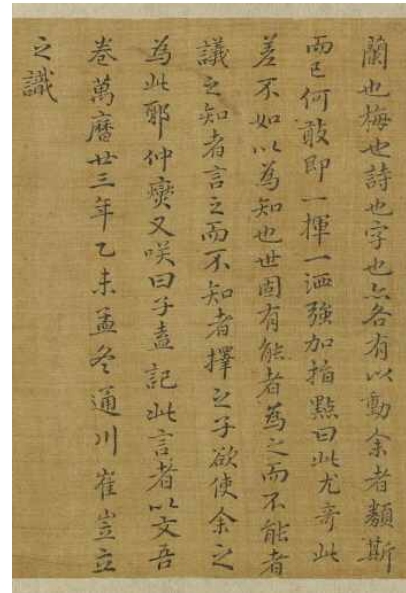 蘭也梅也詩也字也亦各有以動余者類斯
而已何敢即一揮一洒強加指點曰此尤奇此
差不如以為知也世固有能者為之而不能者
議之知者言之而不知者擇之子欲使余之
為此耶仲燮又咲曰子盍記此言者以文吾
卷萬曆廿三年乙未孟冬通川崔岦立
之識